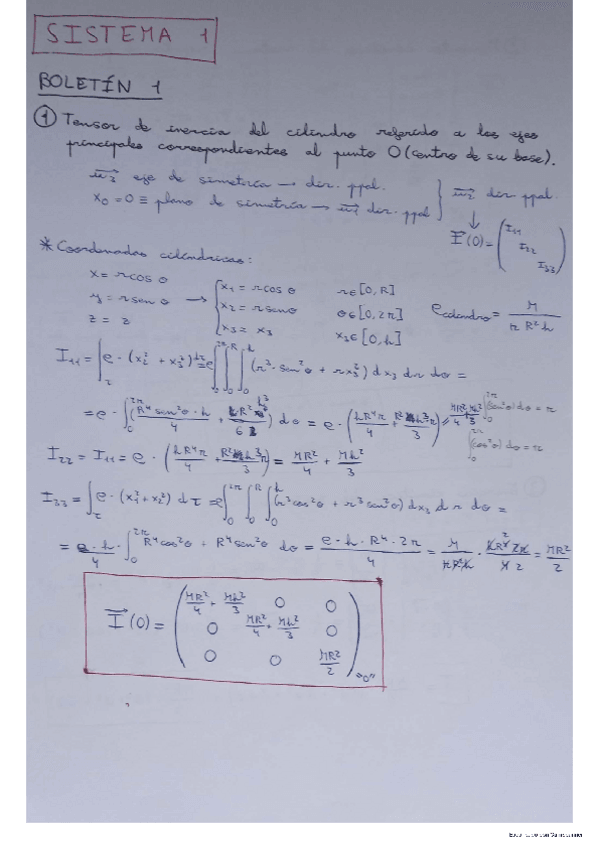 SISTEMA 1
BOLETÍN 1
① Tensor de inercia del cilindro referido a los ejes
principales correspondientes al punto O (centro de su base).
u⃗₃ eje de simetría → dir. ppal.
x₀ = 0 ≡ plano de simetría → u⃗₁ dir. ppal } u⃗₂ dir ppal.
↓
I⃗(0) = ( I₁₁ I₂₂ I₃₃ )
* Coordenadas cilíndricas:
x = r cos θ → { x₁ = r cos θ r ∈ [0, R]
y = r sen θ x₂ = r senθ θ ∈ [0, 2π] ρcilindro = M / π R² h
z = z x₃ = x₃ x₃ ∈ [0, h]
I₁₁ = ∫τ ρ · (x₂² + x₃²) dτ = ρ ∫₀^2π ∫₀^R ∫₀^h (r³ · sen²θ + r x₃²) dx₃ dr dθ =
= ρ · ∫₀^2π (R⁴ sen²θ · h / 4 + R² h³ / 6) dθ = ρ · (h R⁴ π / 4 + R² h³ π / 3) = MR²/4 + Mh²/3
∫₀^2π (sen²θ) dθ = π
∫₀^2π (cos²θ) dθ = π
I₂₂ = I₁₁ = ρ · (h R⁴ π / 4 + R² h³ π / 3) = MR²/4 + Mh²/3
I₃₃ = ∫τ ρ · (x₁² + x₂²) dτ = ρ ∫₀^2π ∫₀^R ∫₀^h (r³ cos²θ + r³ sen²θ) dx₃ dr dθ =
= ρ · h / 4 · ∫₀^2π R⁴ cos²θ + R⁴ sen²θ dθ = ρ · h · R⁴ · 2π / 4 = M / π R² h · h R⁴ 2π / 4 2 = MR²/2
I⃗(0) = ( MR²/4 + Mh²/3 0 0
0 MR²/4 + Mh²/3 0
0 0 MR²/2 ) "0"